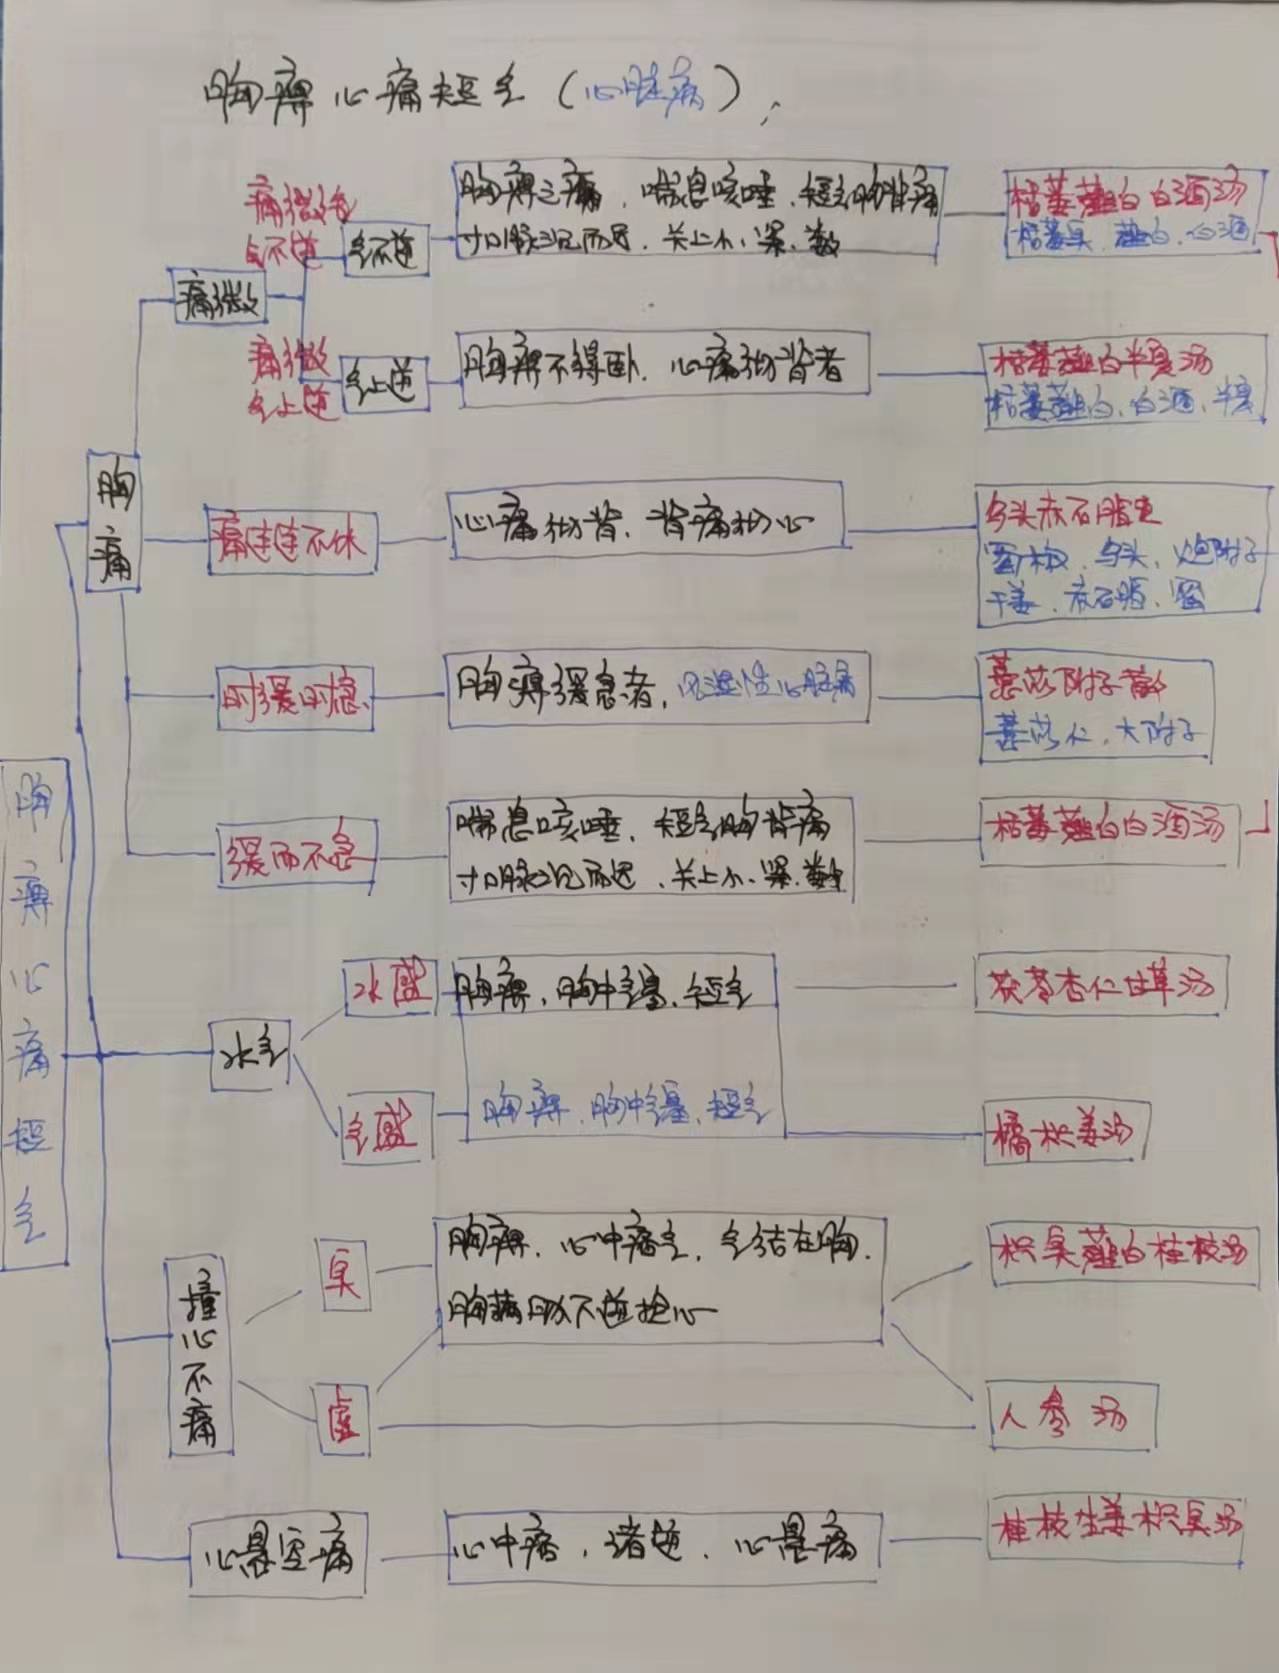 胸痹心痛短气（心脏病）
痛微者
气不逆
气不逆
胸痹之痛，喘息咳唾，短气胸背痛
寸口脉沉而迟，关上小、紧、数
栝蒌薤白白酒汤
栝蒌实、薤白、白酒
痛微
痛微
气上逆
气上逆
胸痹不得卧，心痛彻背者
栝蒌薤白半夏汤
栝蒌薤白、白酒、半夏
胸痛
痛连连不休
心痛彻背、背痛彻心
乌头赤石脂丸
蜀椒、乌头、炮附子
干姜、赤石脂、蜜
时缓时急
胸痹缓急者，风湿性心脏病
薏苡附子散
薏苡仁、大附子
缓而不急
喘息咳唾，短气胸背痛
寸口脉沉而迟、关上小、紧、数
栝蒌薤白白酒汤
胸痹心痛短气
水气
水盛
胸痹，胸中气塞、短气
茯苓杏仁甘草汤
气盛
胸痹，胸中气塞、短气
橘枳姜汤
撞心不痛
实
胸痹，心中痞气，气结在胸，
胸满胁下逆抢心
枳实薤白桂枝汤
虚
人参汤
心悬空痛
心中痞，诸逆，心悬痛
桂枝生姜枳实汤